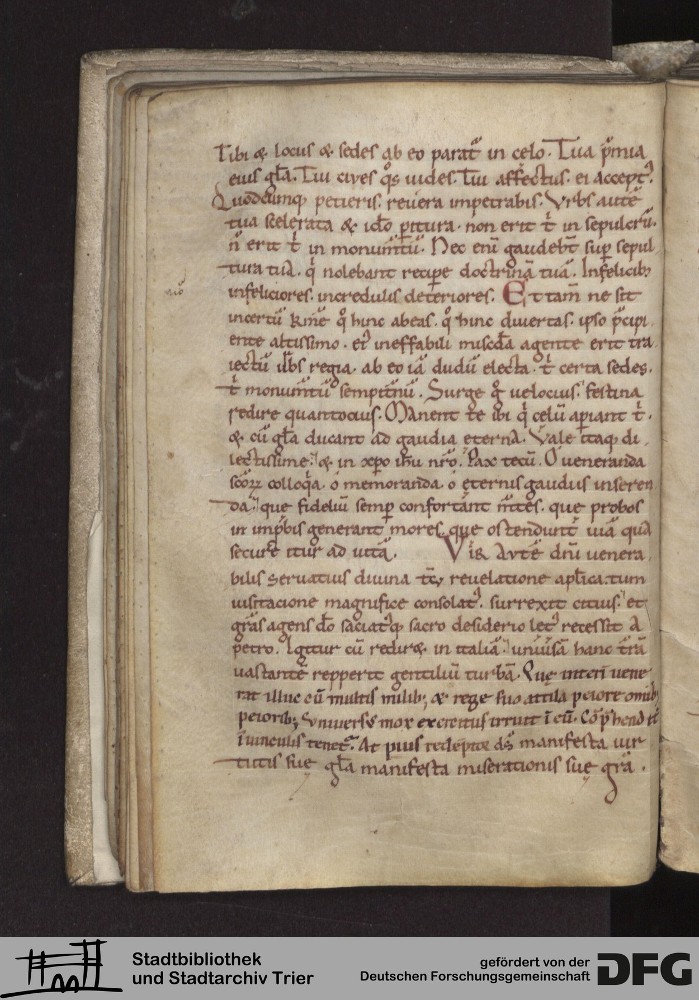 Tibi & locus & sedes ab eo parat᷑ in celo. Tua p̄mia
eius gl̄a. Tui ciues q̄s uides. Tui affectus. ei accept᷒.
Quodcumq; petieris. reuera impetrabis. Vrbs autē
tua scelerata & ideo peritura. non erit t̄ in sepulcrū.
n̄ erit t̄ in monum̄tū. Nec enī gaudebt̄ sup̄ sepul
tura tua. q̄ nolebant recipe doctrinā tuā. Infelicib;
infeliciores. incredulis deteriores. Et tam̄ ne sit
incertū kme q̊ hinc abeas. q̊ hinc diuertas. ipso p̄cipi
ente altissimo. et᷒ ineffabili misc̄dia agente erit tra
iectū urbs regia. ab eo iā dudū electa. t̄ certa sedes.
t̄ monum̄tū sempit̄nū. Surge g̊ uelocius. festina
redire quantocius. Manent te ibi q̄ celū ap̄iant t̄.
& cū gl̄a ducant ad gaudia eterna. Vale itaq; di
lectissime. & in xp̄o ih̄u nr̄o. Pax tecū. O ueneranda
sc̄oꝝ colloq̄a. o memoranda. o eternis gaudiis inseren
da. que fideliū semp̄ confortant m̄tes. que probos
in imp̄bis generant mores. que ostendunt uiā qua
secure itur ad uitā. Vir autē dn̄i uenera
bilis seruatius diuina t̄c reuelatione apl̄icatum
uisitacione magnifice consolat᷒. surrexit citius. et
gr̄as agens dō saciat᷒q; sacro desiderio let᷒ recessit a
petro. Igitur cū rediret in italiā. uniu̅sā hanc t̄rā
uastantē repperit gentiliū turbā. Que interī uene
rat illuc cū multis milib; & rege suo attila peiore omīb;
peiorib;. Vniuersus mox exercitus irruit ī eū. Cōp̄hendit᷒
ī uinculis tenet᷑. At pius redēptor ds̄ manifesta uir
tutis sue gl̄a manifesta miserationis sue gr̄a.
Stadtbibliothek
und Stadtarchiv Trier
gefördert von der
Deutschen Forschungsgemeinschaft
DFG